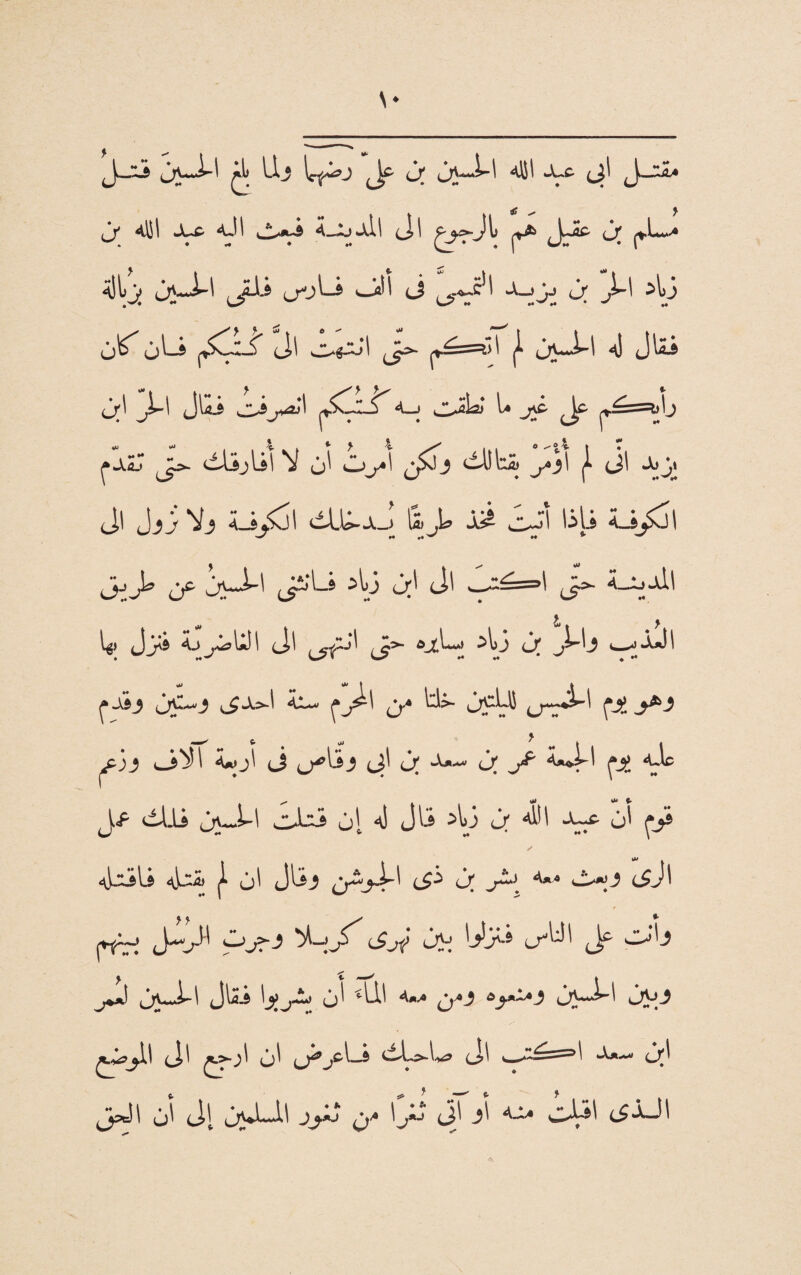 ١٠
مقتـل ابى عبد الله الحسين بن علىّ رضهما ولما بلغ الحسين قتـلُ
مُسلم بن عقيل همّ بالرجوع الى المدينـة فبعث اليه عبد الله بن
زياد الحرّ بن يزيـد التميمىّ فى ألف فارس فلقى الحسين بزبالة
فقال له الحسين لم آتكم حتّى انتهتْ الىّ كُتُبكُم فان كان
رأيكم على غير ما نطقت به كُتُبكم انصرفتُ فقال الحرّ ابن
يزيد انى لم أُوْمَرْ بقتالك ولكن أُمرتُ أن لا أفارقك حتّى تقدّم
الكوفـة فإذا أتيتَ فخذ طريقا يدخلك الكوفـة ولا تزول الى
المدينـة حتّى اكتب الى ابن زياد فانثنى الحسين عن طريق
العُذيب والحرُّ بن زياد يسايره حتى انتهى الى الغاضريّة فنزل بها
وهو يوم الخميس لليلتين خلتا من المحرّم سنة احدى وستّين وقدم
عليه يوم الجمعة عُمر بن سعد بن ابى وقّاص فى أربعة آلاف وزعم
قوم أنّ عبيد الله بن زياد قال له إن قتلتَ الحسين فلك عمل
الرىّ وبعث معه بشر بن ذى الجوشن وقال ان لم يقتله فاقتله
وأنت على الناس فنزلوا بين نهرى كربلا وجرت الرُسُل بينهم
وبين الحسين ومنعوه ومن معه الماءَ أن يشربوا فقال الحسين لعُمر
ابن سعد اكتب الى صاحبك فاعرض ان ارجع الى الموضع
الـذى اقبلتُ منه أو آتى ثُغرًا من ثغور المسلمين إلى أن الحق